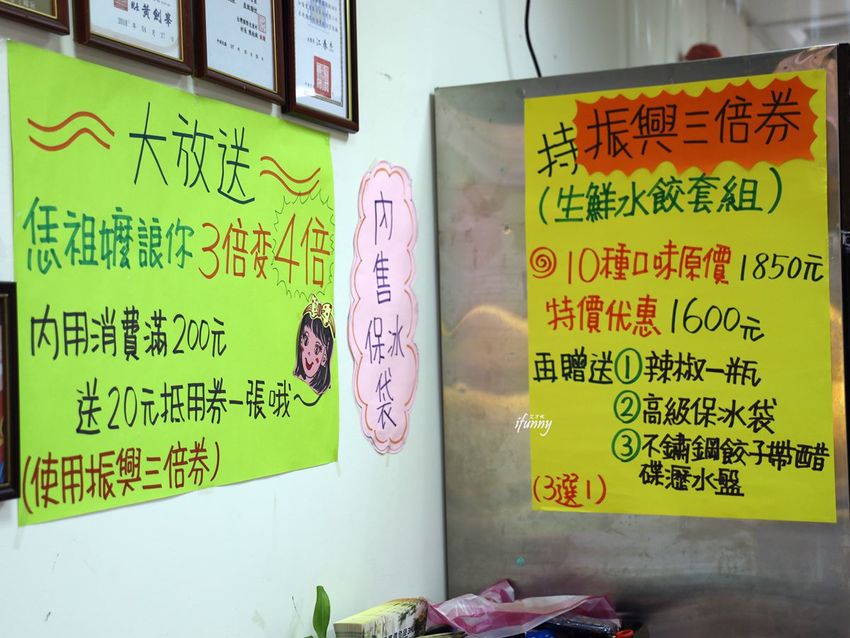 大放送
恁祖嬤讓你3倍變4倍
內用消費滿200元
送20元抵用券一張哦～
(使用振興三倍券)
內售保冰袋
持振興三倍券
(生鮮水餃套組)
10種口味原價1850元
特價代惠1600元
再贈送①辣椒一瓶
②高級保冰袋
③不鏽鋼餃子帶醋
碟瀝水盤
(3選1)
ifunny